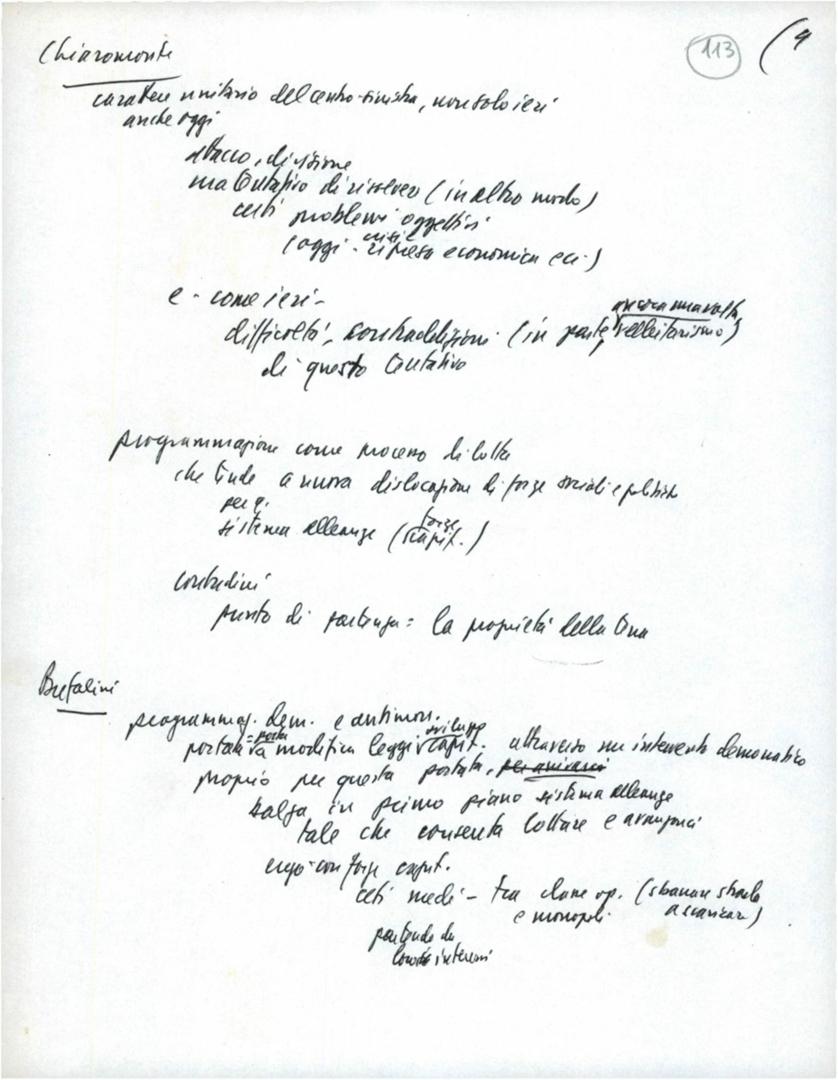 113 (4
Chiaromonte
carattere unitario del centro-sinistra, non solo ieri
anche oggi
attacco, divisione
ma tentativo di risolvere (in altro modo)
certi problemi oggettivi
crisi e
(oggi - ripresa economica ecc.)
e - come ieri -
ancora una volta
difficoltà, contraddizioni (in parte, velleitarismo)
di questo tentativo
programmazione come processo di lotta
che tende a nuova dislocazione di forze sociali e politiche
per q.
forze
sistema alleanze (capit.)
contadini
punto di partenza = la proprietà della terra
Bufalini
programmaz. dem. e antimon.
= porta sviluppo
portata a modifica leggi capit. attraverso un intervento democratico
proprio per questa portata,
balza in primo piano sistema alleanze
tale che consenta lottare e avanzare
ergo - con forze capit.
ceti medi - tra classe op. (sbarrare strada
e monopoli a scaricare)
partendo da
loro interessi